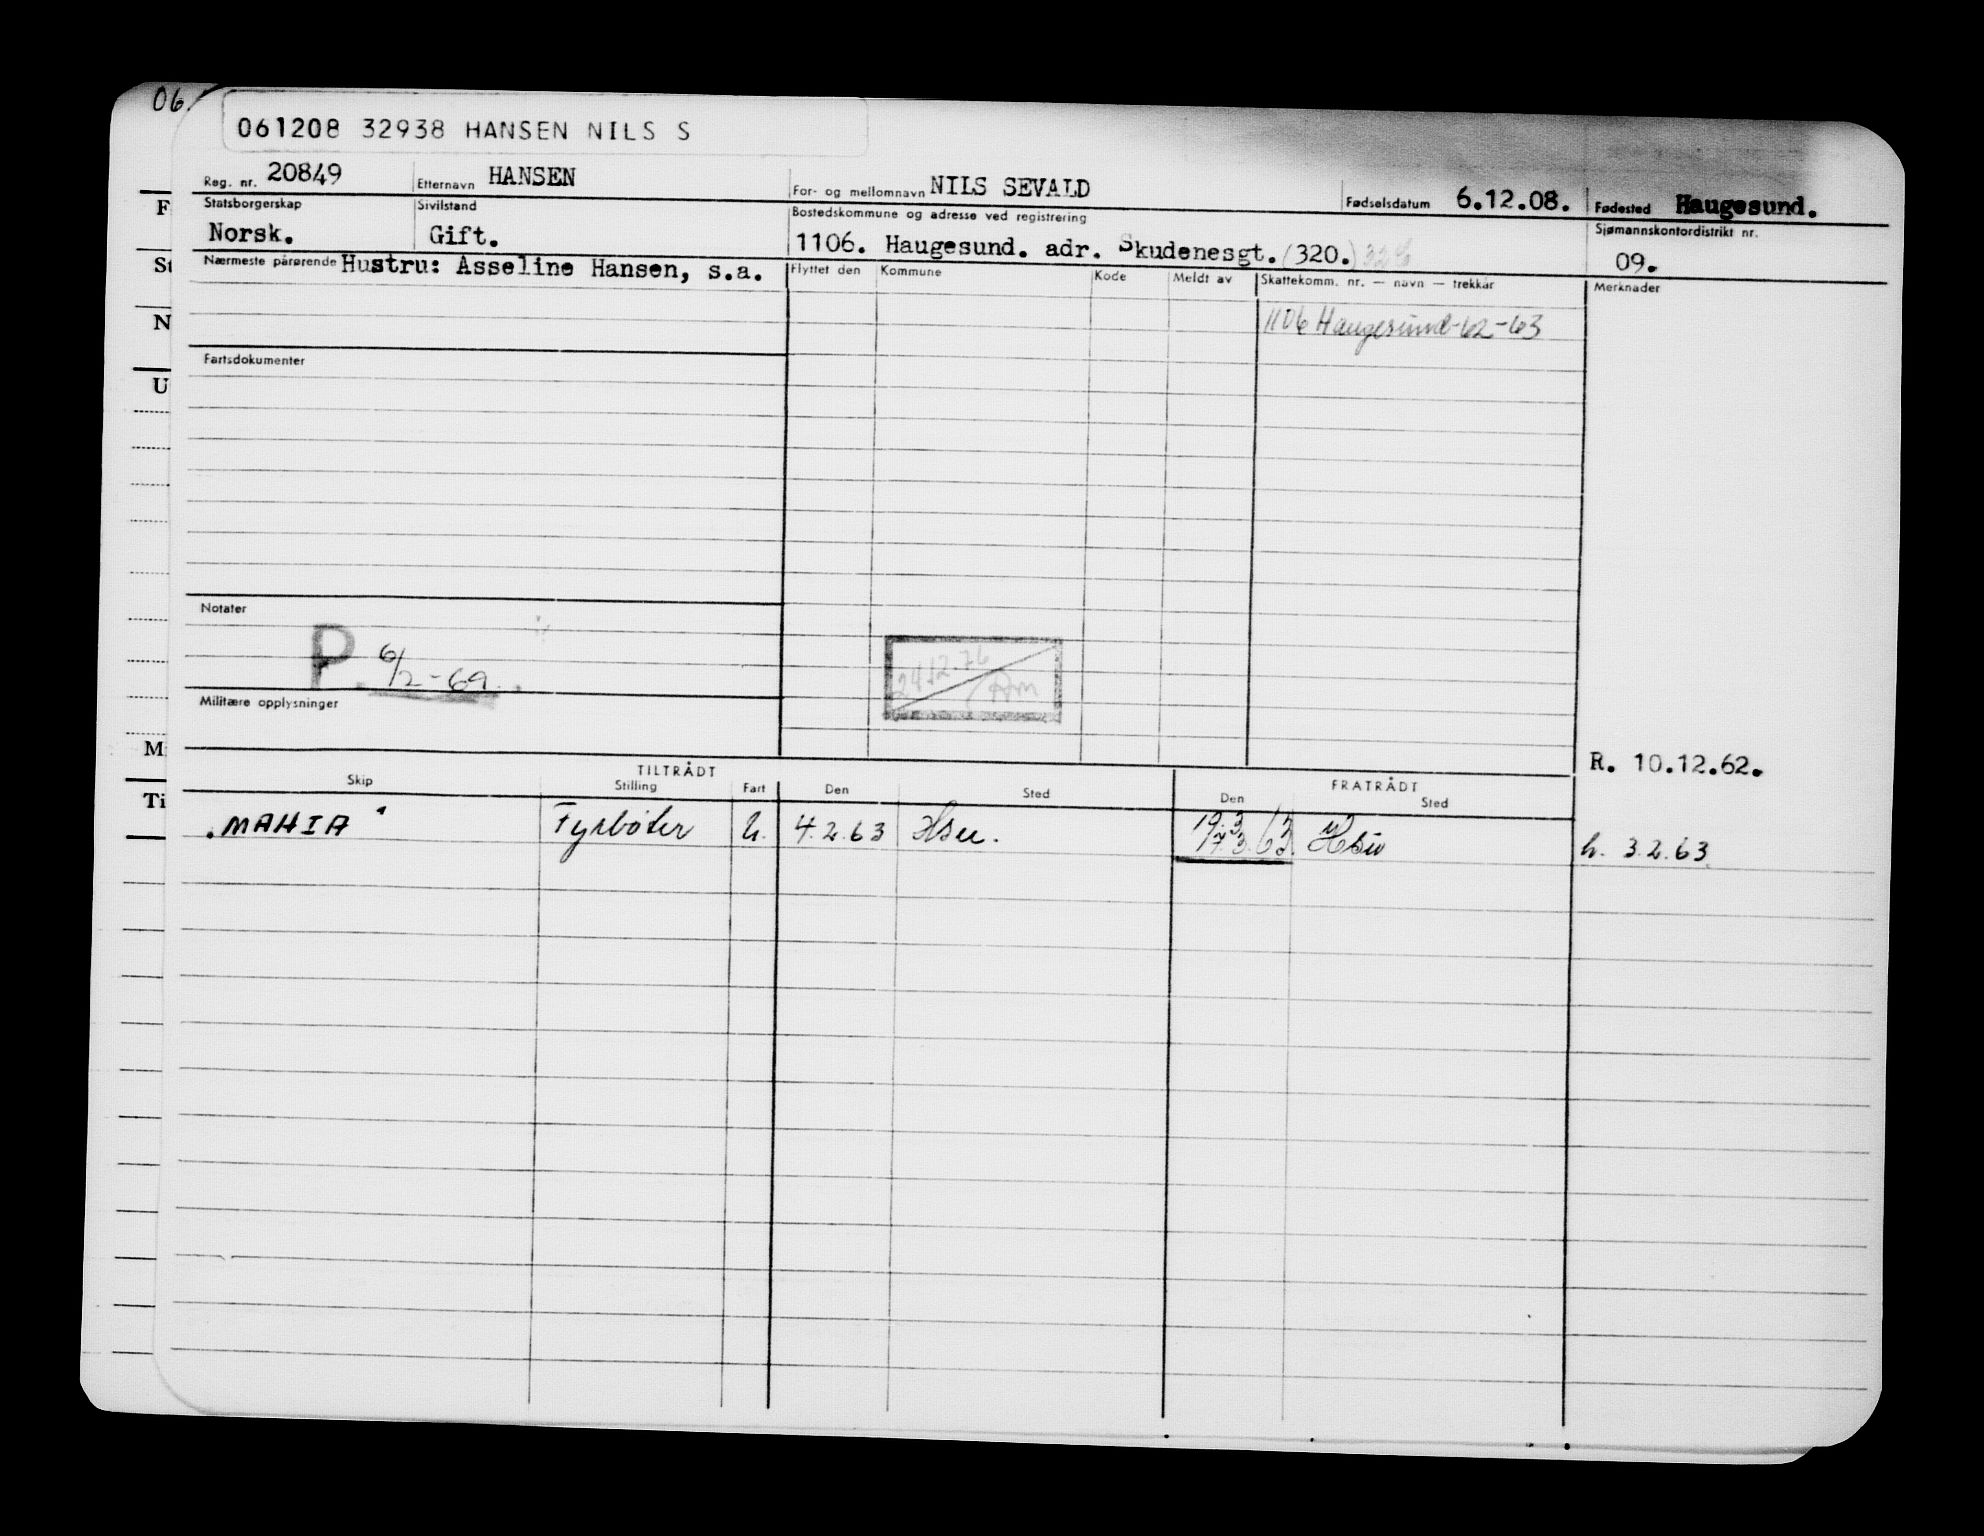 06
061208 32938 HANSEN NILS S
Reg. nr. 20849 Etternavn HANSEN For- og mellomnavn NILS SEVALD Fødselsdatum 6.12.08. Fødested Haugesund.
Statsborgerskap Sivilstand Bostedskommune og adresse ved registrering Sjømannskontordistrikt nr.
Norsk. Gift. 1106. Haugesund. adr. Skudenesgt. (320.) 09.
Nærmeste pårørende Hustru: Asseline Hansen, s.a. Flyttet den Kommune Kode Meldt av Skattekomm. nr. — navn — trekkår Merknader
1106 Haugesund-62-63
Fartsdokumenter
Notater
P 6/2-69.
24.12.76
Militære opplysninger
R. 10.12.62.
TILTRÅDT FRATRÅDT
Skip Stilling Fart Den Sted Den Sted
"MAHIA" Fyrbøter U. 4.2.63 Hsu. 19.3/63 Hsu h. 3.2.63.
17.3.63.
F
St
N
U
M
Ti